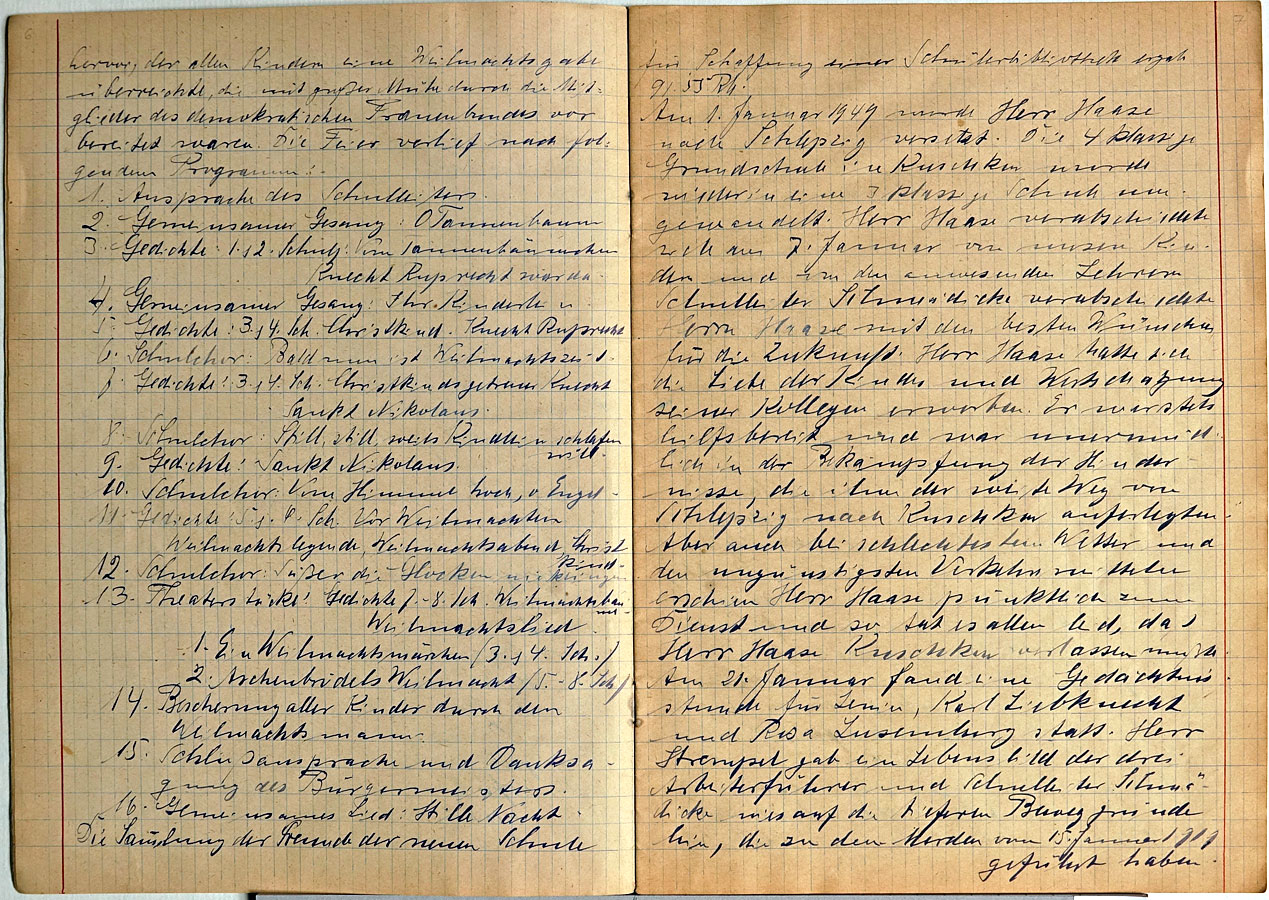 6
hervor, der allen Kindern eine Weihnachtsgabe
überreichte, die mit großer Mühe durch die Mit-
glieder des demokratischen Frauenbundes vor
bereitet waren. Die Feier verlief nach fol-
gendem Programm:
1. Ansprache des Schulleiters.
2. Gemeinsamer Gesang: O Tannenbaum
3. Gedichte: 1. u 2. Schulj: Vom Tannenbäumchen
Knecht Ruprecht
4. Gemeinsamer Gesang: Ihr Kinderlein
5. Gedichte: 3. u 4. Sch. Christkind. Knecht Ruprecht
6. Schulchor: Bald nun ist Weihnachtszeit.
7. Gedichte: 3. u 4. Sch. Christkinds getreuer Knecht
Sankt Nikolaus.
8. Schulchor: Still, still, weils Kindlein schlafen
will.
9. Gedichte: Sankt Nikolaus.
10. Schulchor: Vom Himmel hoch, o Engel-
11. Gedichte 5. u. 6. Sch. Vor Weihnachten
Weihnachtslegende, Weihnachtsabend Christ-
kind-
12. Schulchor: Süßer die Glocken nie klingen
13. Theaterstücke: Gedichte 7.-8. Sch. Weihnachtsbau
Weihnachtslied
1. Ein Weihnachtsmärchen /3. u 4. Sch./
2. Aschenbrödels Weihnacht /5.-8. Sch/
14. Bescherung aller Kinder durch den
Weihnachtsmann.
15. Schlußansprache und Danksa-
gung des Bürgermeisters.
16. Gemeinsames Lied: Stille Nacht
Die Samlung der Freunde der neuen Schule
7
für Schaffung einer Schülerbibliothek ergab
91.55 RM.
Am 1. Januar 1949 wurde Herr Haase
nach Schlepzig versetzt. Die 4 klassige
Grundschule in Kuschkow wurde
wieder in eine 3 klassige Schule um-
gewandelt. Herr Haase verabschiedete
sich am 7. Januar von unsern Kin-
dern und von den anwesenden Lehrern
Schulleiter Schmädicke verabschiedete
Herrn Haase mit den besten Wünschen
für die Zukunft. Herr Haase hatte sich
die Liebe der Kinder und Wertschätzung
seiner Kollegen erworben. Er war stets
hilfsbereit und war unermüd-
lich in der Bekämpfung der Hinder-
nisse, die ihm der weite Weg von
Schlepzig nach Kuschkow auferlegten.
Aber auch bei schlechtestem Wetter und
den ungünstigsten Verkehrsmitteln
erschien Herr Haase pünktlich zum
Dienst und so tat es allen leid, daß
Herr Haase Kuschkow verlassen mußte.
Am 21. Januar fand eine Gedächtnis-
stunde für Lenin, Karl Liebknecht
und Rosa Luxemburg statt. Herr
Strempel gab ein Lebensbild der drei
Arbeiterführer und Schulleiter Schmä-
dicke wies auf die tieferen Beweggründe
hin, die zu den Morden vom 15. Januar 1919
geführt haben.